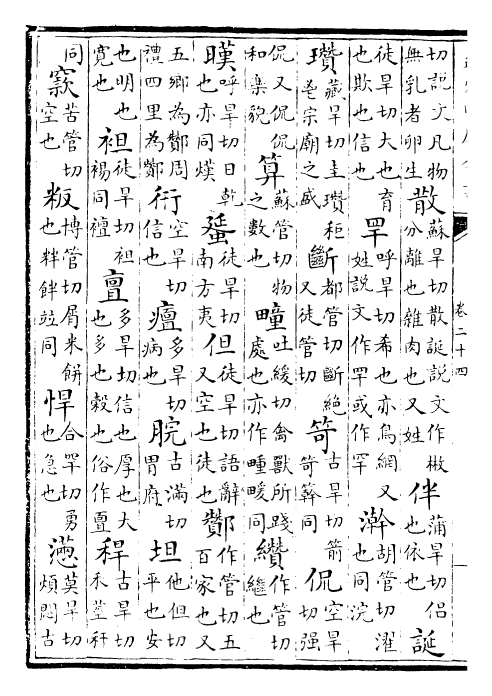 卷二十四
切說文凡物無乳者卵生 散 蘇旱切散誕說文作㪔分離也雜肉也又姓 伴 蒲旱切侶也依也 誕
徒旱切大也育也欺也信也 罕 呼旱切希也亦鳥網又姓說文作罕或作罕 澣 胡管切濯也同浣
瓚 藏旱切圭瓚秬鬯宗廟之盛 斷 都管切斷絕又徒管切 笴 古旱切箭笴簳同 侃 空旱切強
侃又侃侃和樂貌 算 蘇管切物之數也 疃 吐緩切禽獸所踐處也亦作畽暖同 纘 作管切繼也
暵 呼旱切日乾也亦同熯 蜑 徒旱切南方夷 但 徒旱切語辭又空也徒也 酇 作管切五百家也又
五鄉為酇周禮四里為酇 衎 空旱切信也 癉 多旱切病也 脘 古滿切胃府 坦 他但切平也安
也明也寬也 袒 徒旱切袒裼同襢 亶 多旱切信也厚也大也多也穀也俗作亶 稈 古旱切禾莖秆
同 窾 苦管切空也 粄 博管切屑米餅也粚䬳並同 悍 合罕切勇也急也 懣 莫旱切煩悶古